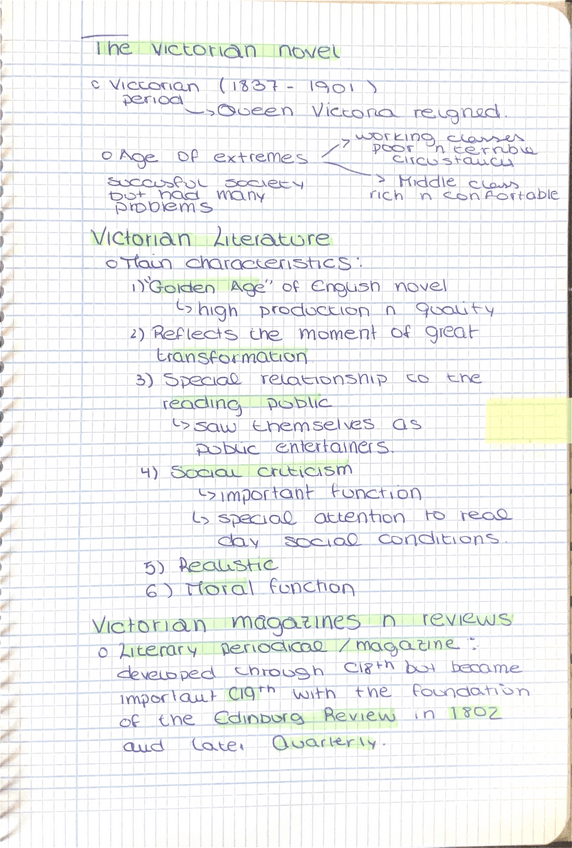 The Victorian novel
o Victorian (1837 - 1901)
period
↳ Queen Victoria reigned.
o Age of extremes
→ working classes
poor n terrible
circustancies
→ Middle class
rich n confortable
succesful society
but had many
problems
Victorian Literature
o Main characteristics:
1) "Golden Age" of English novel
↳ high production n quality
2) Reflects the moment of great
transformation
3) Special relationship to the
reading public
↳ saw themselves as
public entertainers.
4) Social criticism
↳ important function
↳ special attention to real
day social conditions.
5) Realistic
6) Moral function
Victorian magazines n reviews
o Literary periodical / magazine:
developed through C18th but became
important C19th with the foundation
of the Edinburg Review in 1802
and later Quarterly.